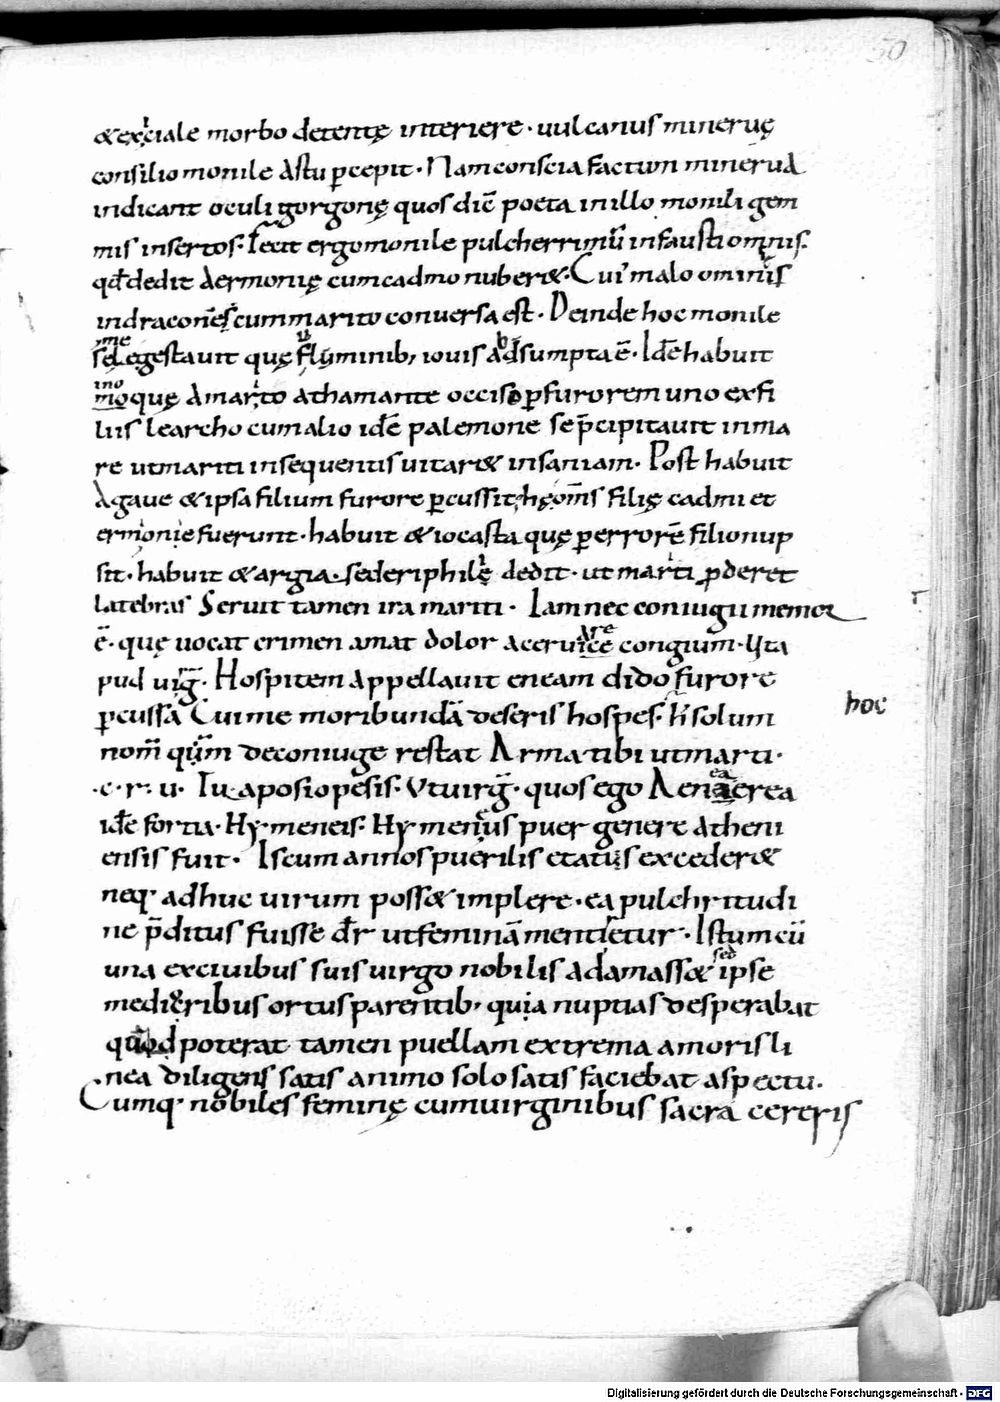 50
&exciale morbo detentę interiere · uulcanus mineruę
consilio monile astu p̄cepit · Nam conscia factum minerua
indicant oculi gorgonę quos dic̄ poeta in illo monili gem
mis insertos · Fecit ergo monile pulcherrimū infausti ominis ·
qđ dedit aermonię cum cadmo nuber& · Cui malo ominis
indracones cum marito conuersa est · Deinde hoc monile
semelegestauit quę fluminib; iouis absumpta ē · Idē habuit
inoquę amarito athamante occiso p̄ furorem uno ex fi
liis learcho cum alio idē palemone se p̄cipitauit in ma
re ut mariti insequentis uitar& insaniam · Post habuit
Agaue & ipsa filium furore p̄cussit · hę oms̄ filię cadmi et
ermionie fuerunt · habuit & iocasta quę p̄ errorē filio nup
sit · habuit & argia · sed eriphilę dedit · ut mariti p̄deret
latebras Seruit tamen ira mariti · Iam nec coniugii memor
ē · quę uocat crimen amat dolor aceruare congium · Ita
pud uirḡ · Hospitem appellauit eneam dido furore
p̄cussa Cui me moribundā deseris hospes · h̄ solum
hoc
nom̄ qūm de coniuge restat Arma tibi ut marti ·
· c · r · u · Tu aposiopesis · Vt uirḡ · quos ego Aenea erea
idē fortia · Hymeneis · Hymeneus puer genere atheni
ensis fuit · Is cum annos puerilis etatis exceder&
neq; adhuc uirum poss& implere · ea pulchritudi
ne p̄ditus fuisse dr̄ ut feminā mentiretur · Istum cū
una exciuibus suis uirgo nobilis adamass& sed ipse
mediocribus ortus parentib; quia nuptias desperabat
quod poterat tamen puellam extrema amoris li
nea diligens satis animo solo satis faciebat aspectu ·
Cumq; nobiles feminę cum uirginibus sacra cereris
Digitalisierung gefördert durch die Deutsche Forschungsgemeinschaft - DFG